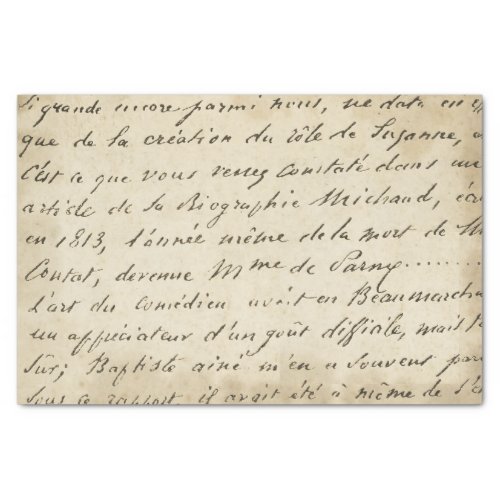 si grande encore parmi nous, ne date en
que de la création du rôle de Suzanne,
C'est ce que vous verrez Constaté dans un
article de la Biographie Michaud,
en 1813, l'année même de la mort de
Contat, devenue Mme de Parny........
L'art du Comédien avait en Beaumarch
un appréciateur d'un goût difficile, mais
sûr; Baptiste ainé m'en a souvent par
sous ce rapport, il avait été à même de